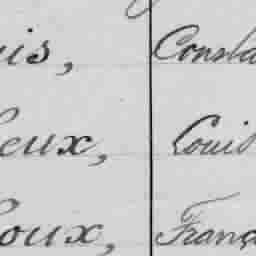 is, Consta
eux, Louis
oux, Franç